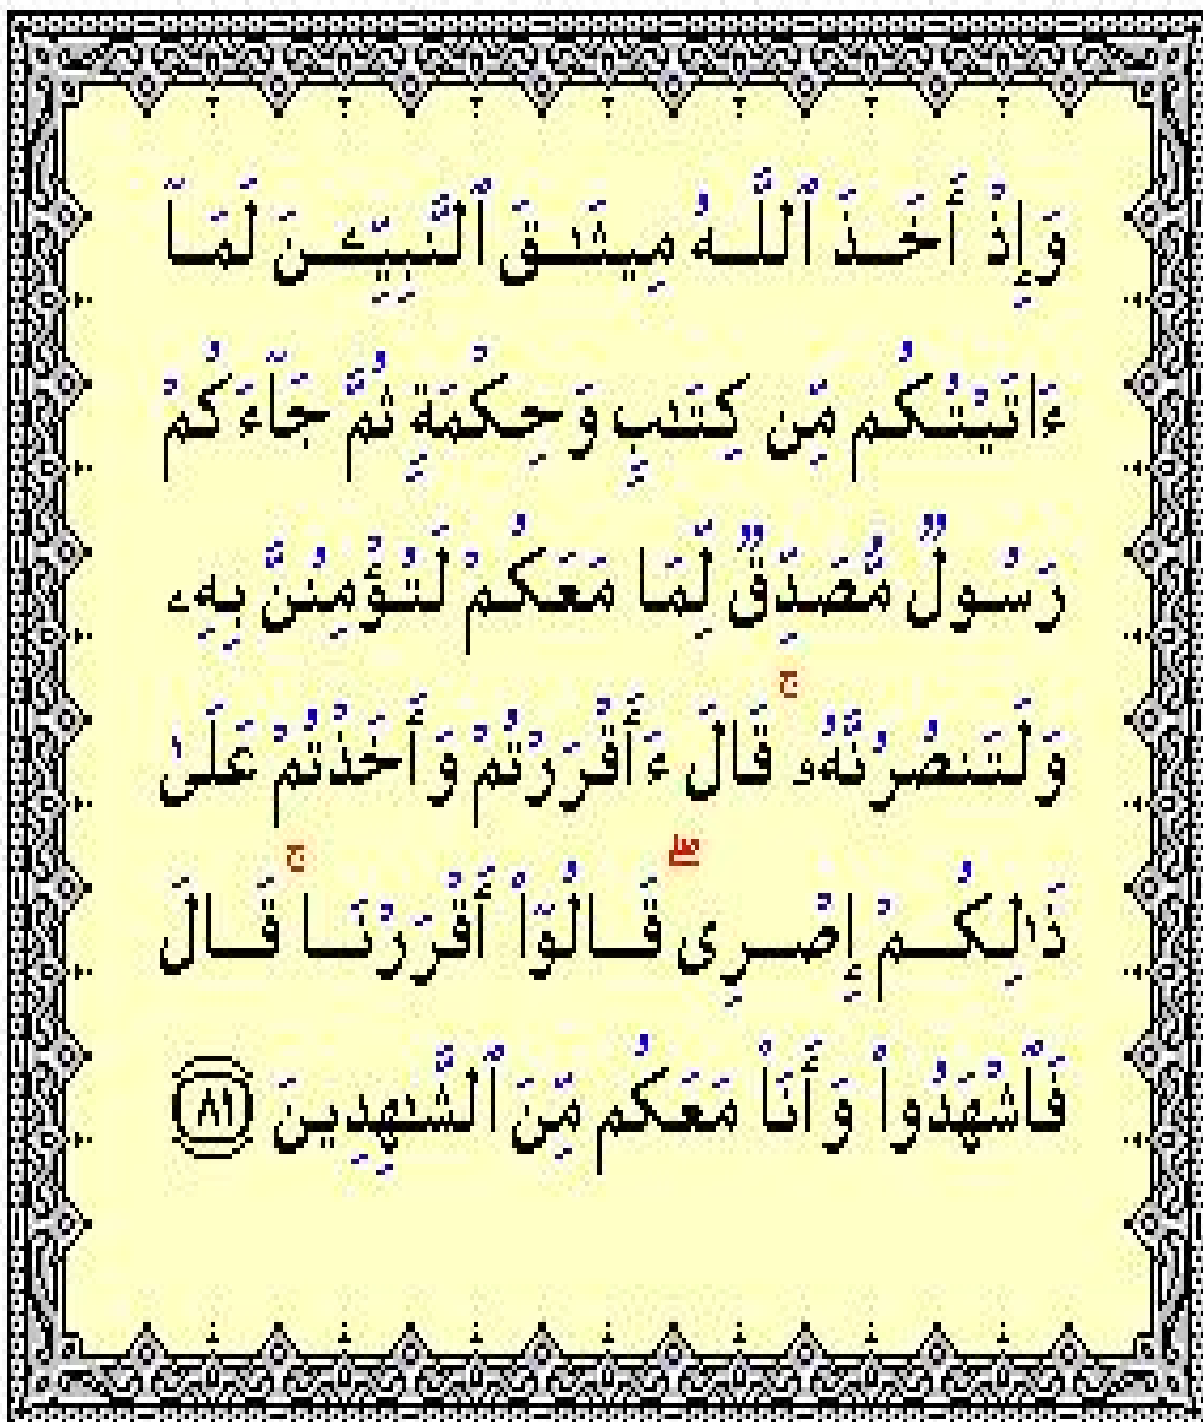 وَإِذْ أَخَذَ ٱللَّهُ مِيثَٰقَ ٱلنَّبِيِّـۧنَ لَمَآ
ءَاتَيْتُكُم مِّن كِتَٰبٍ وَحِكْمَةٍ ثُمَّ جَآءَكُمْ
رَسُولٌ مُّصَدِّقٌ لِّمَا مَعَكُمْ لَتُؤْمِنُنَّ بِهِۦ
وَلَتَنصُرُنَّهُۥ ۚ قَالَ ءَأَقْرَرْتُمْ وَأَخَذْتُمْ عَلَىٰ
ذَٰلِكُمْ إِصْرِى ۖ قَالُوٓا۟ أَقْرَرْنَا ۚ قَالَ
فَٱشْهَدُوا۟ وَأَنَا۠ مَعَكُم مِّنَ ٱلشَّٰهِدِينَ ٨١